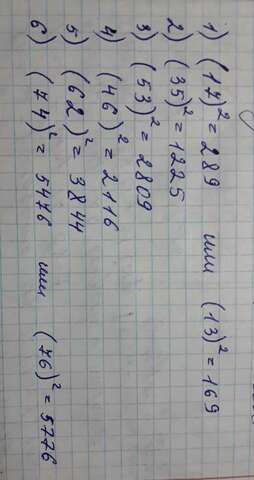 1) (17)² = 289 или (13)² = 169
2) (35)² = 1225
3) (53)² = 2809
4) (46)² = 2116
5) (62)² = 3844
6) (74)² = 5476 или (76)² = 5776